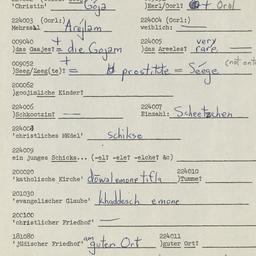 'Christin' Goja )Orel/Oorl? + Orol
224003 (Oorl:) 224004 (Oorl:)
Mehrzahl Arejlam weiblich: —
009040 224005 very
)das Gasjes? = die Gojam )das Areeles? rare
009052
)Seeg/Zeeg(te)? = prostitute = Seege
200062
)gesjinlich Kinder?
224006 224007
)Schkootzim? — Einzahl: Scheetzchen
224008
'christliches Mädel' schikse
224009
ein junges Schicks... (-el? -ele? -elche? &c)
200020 224010
'katholische Kirche' dowal emone tifla )Tumme?
201030
'evangelischer Glaube' khaddesch emone
200100
'christlicher Friedhof' —
181080 224011
'jüdischer Friedhof' am guten Ort )guter Ort?